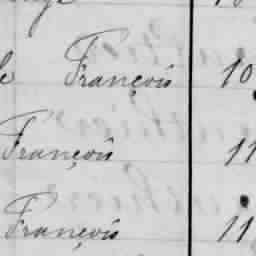 François 10
François 11
François 11